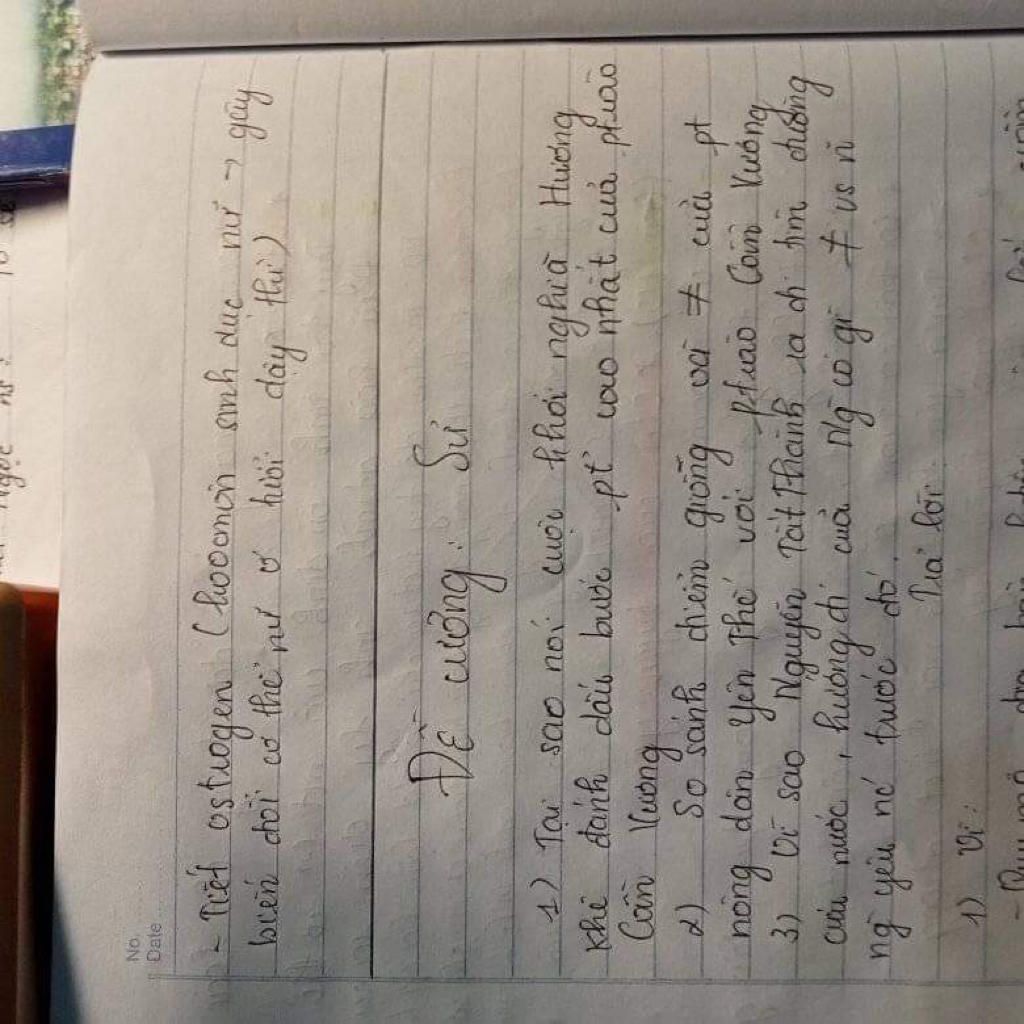 No.
Date
- Tiết ostrogen (hoocmôn sinh dục nữ → gây
biến đổi cơ thể nữ ở tuổi dậy thì)
Đề cương: Sử
1) Tại sao nói cuộc khởi nghĩa Hương
Khê đánh dấu bước pt cao nhất của ptrào
Cần Vương
2) So sánh điểm giống và ≠ của pt
nông dân Yên Thế với ptrào Cần Vương
3) Vì sao Nguyễn Tất Thành ra đi tìm đường
cứu nước, hướng đi của Ng có gì ≠ vs n~
ng yêu nc trước đó.
Trả lời
1) Vì:
- Quy mô